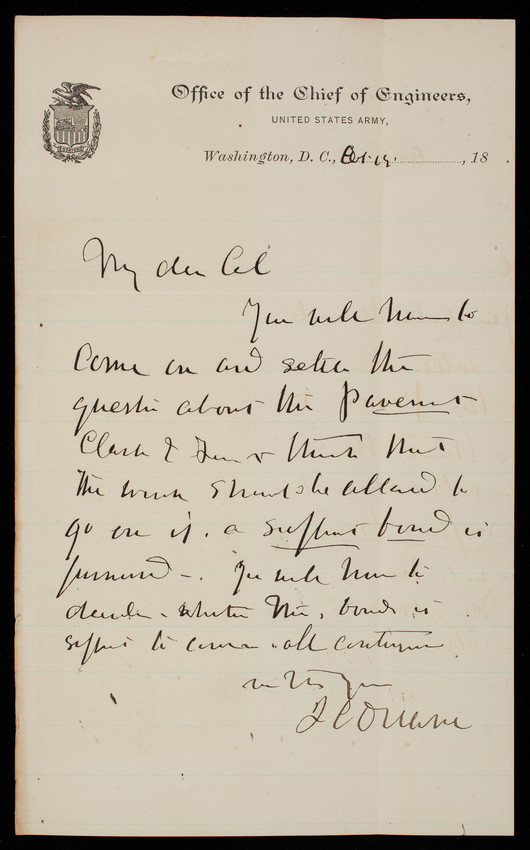 Office of the Chief of Engineers,
UNITED STATES ARMY,
Washington, D. C., Oct 19. , 18
My dear Col
You will have to
come on and settle the
question about the pavement
Clark & I think that
the work should be allowed to
go on if a sufficient bond is
furnished -. You will have to
decide whether the bond is
sufficient to cover all contingencies
J C Duane